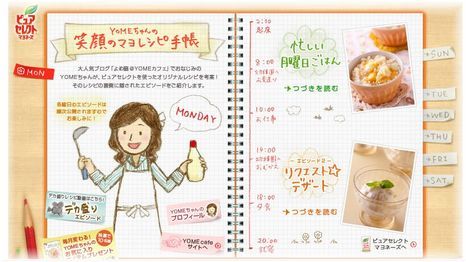 ピュアセレクト
マヨネーズ
YOMEちゃんの
笑顔のマヨレシピ手帳
大人気ブログ「よめ膳@YOMEカフェ」でおなじみの
YOMEちゃんが、ピュアセレクトを使ったオリジナルレシピを考案!
そのレシピの裏側に隠されたエピソードをご紹介します。
各曜日のエピソードは
順次公開されますので
お楽しみに!
MON
MONDAY
デカ盛り
エピソード
YOMEちゃんの
プロフィール
YOME cafe
サイトへ
毎月変わる!
YOMEちゃんの
お気に入り
プレゼント
起床
8:00
忙しい
月曜日ごはん
つづきを読む
10:00
お仕事
14:00
エピソード2
リクエスト☆
デザート
つづきを読む
18:00
夕食
20:00
ピュアセレクト
マヨネーズへ
SUN
TUE
WED
THU
FRI
SAT